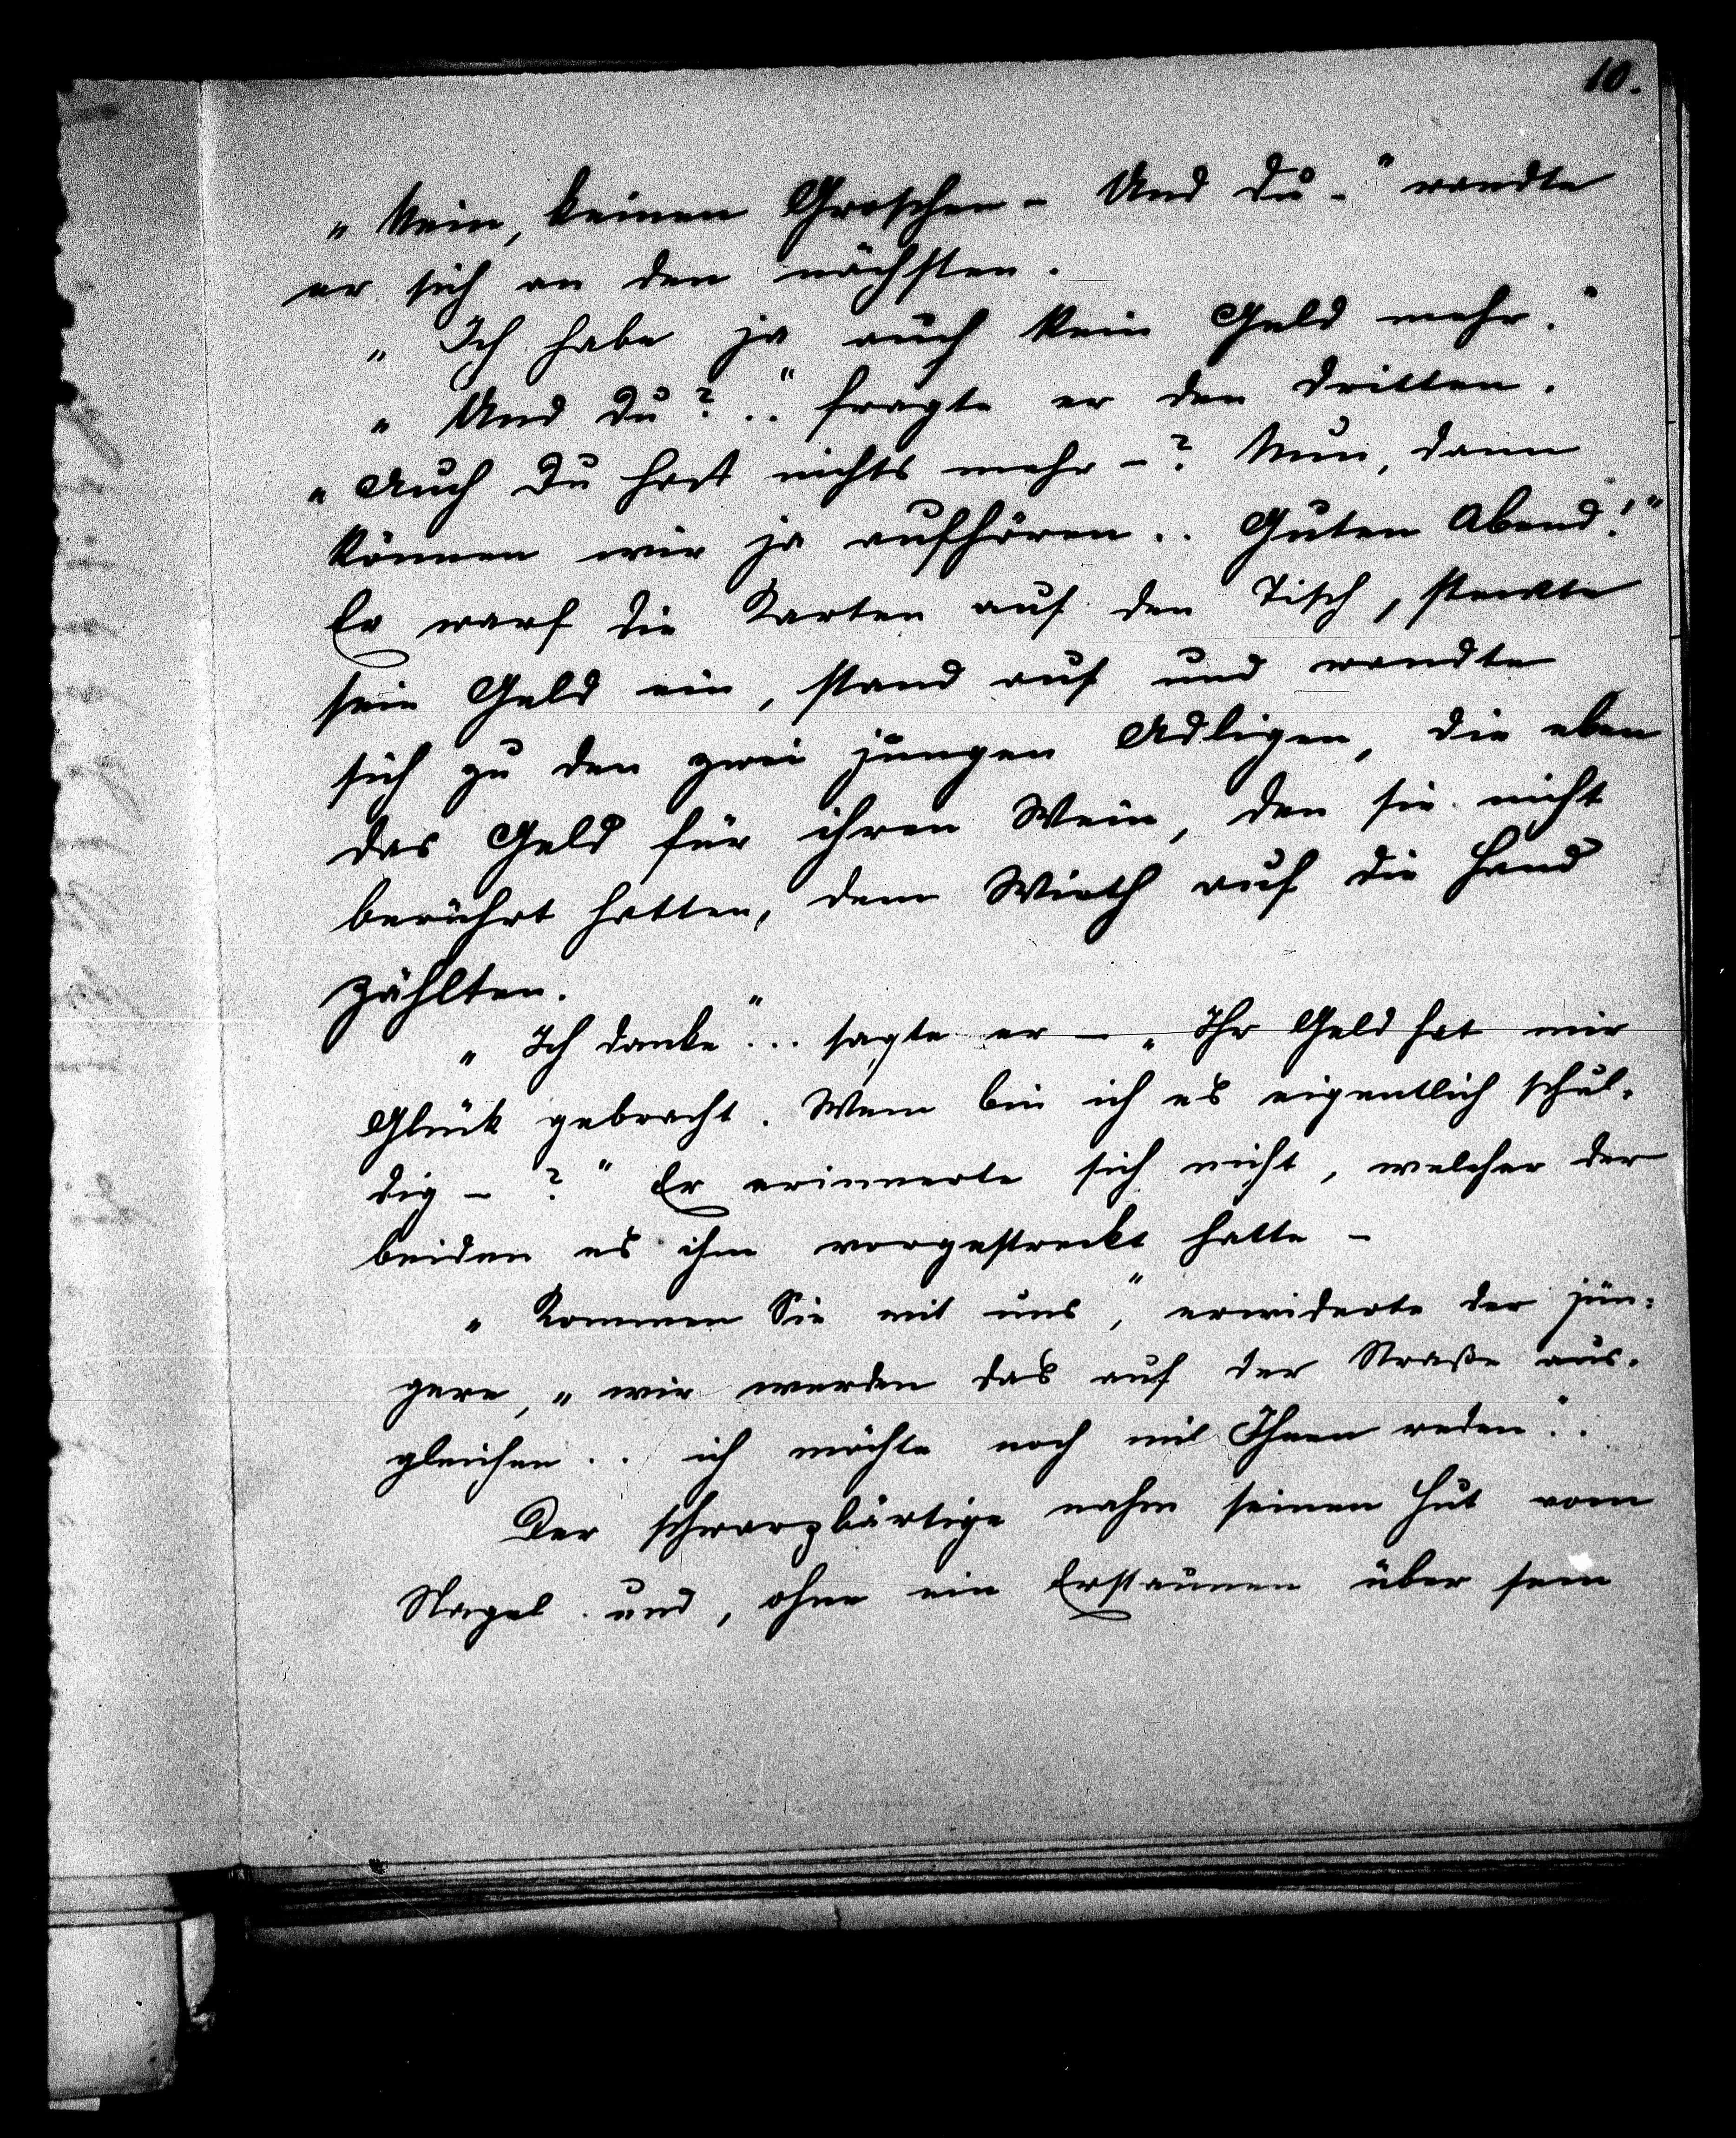 10.
„Nein, keinen Groschen – Und du –" wandte
er sich an den nächsten.
„Ich habe ja auch kein Geld mehr."
„Und du? .." fragte er den dritten.
„Auch du hast nichts mehr –? Nun, dann
können wir ja aufhören .. Guten Abend!"
Er warf die Karten auf den Tisch, steckte
sein Geld ein, stand auf und wandte
sich zu den zwei jungen Adligen, die eben
das Geld für ihren Wein, den sie nicht
berührt hatten, dem Wirth auf die Hand
zählten.
„Ich danke" ... sagte er – „Ihr Geld hat mir
Glück gebracht. Wem bin ich es eigentlich schul-
dig – ?" Er erinnerte sich nicht, welcher der
beiden es ihm vorgestreckt hatte –
„Kommen Sie mit uns," erwiderte der jün-
gere, „wir werden das auf der Straße aus-
gleichen .. ich möchte noch mit Ihnen reden" ..
Der schwarzbärtige nahm seinen Hut vom
Nagel und, ohne ein Erstaunen über sein